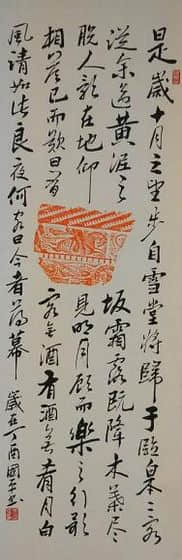 是歲十月之望步自雪堂將歸于臨皋二客
從余過黃泥之坂霜露既降木葉盡
脫人影在地仰見明月顧而樂之行歌
相答已而歎曰有客無酒有酒無肴月白
風清如此良夜何客曰今者薄暮
歲在丁酉國平書